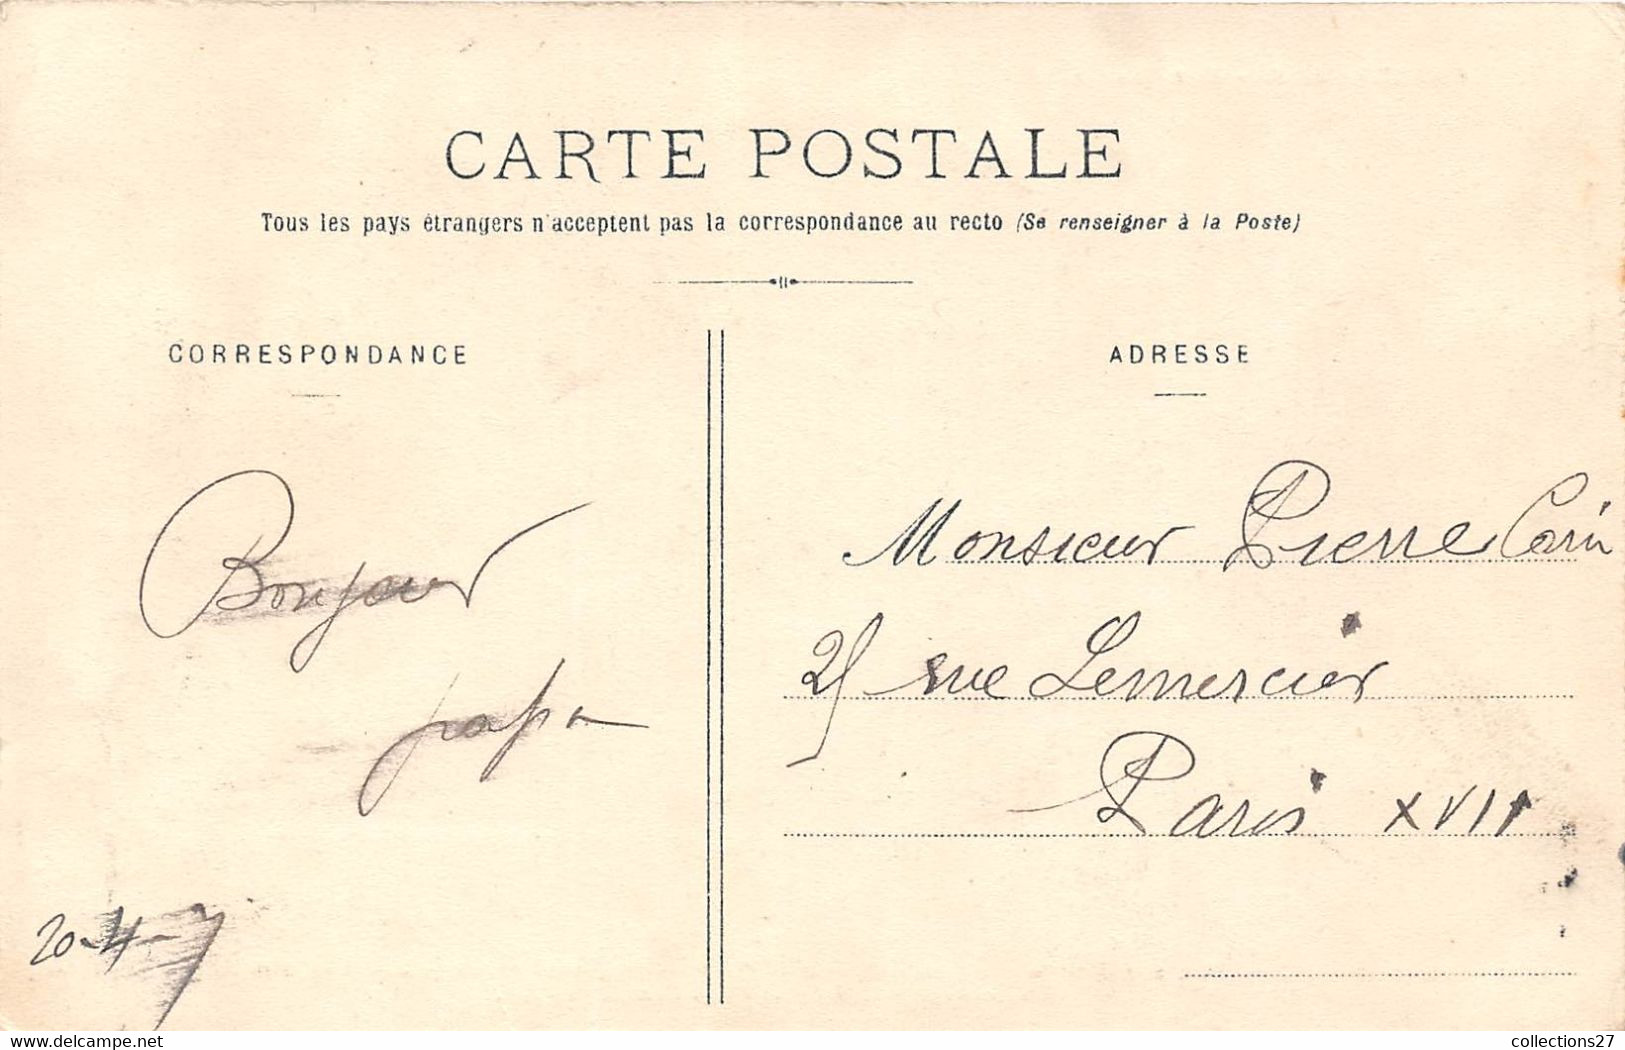 CARTE POSTALE
Tous les pays étrangers n'acceptent pas la correspondance au recto (Se renseigner à la Poste)
CORRESPONDANCE
ADRESSE
Bonjour
papa
20-4-7
Monsieur Pierre
25 rue Lemercier
Paris XVII
collections27